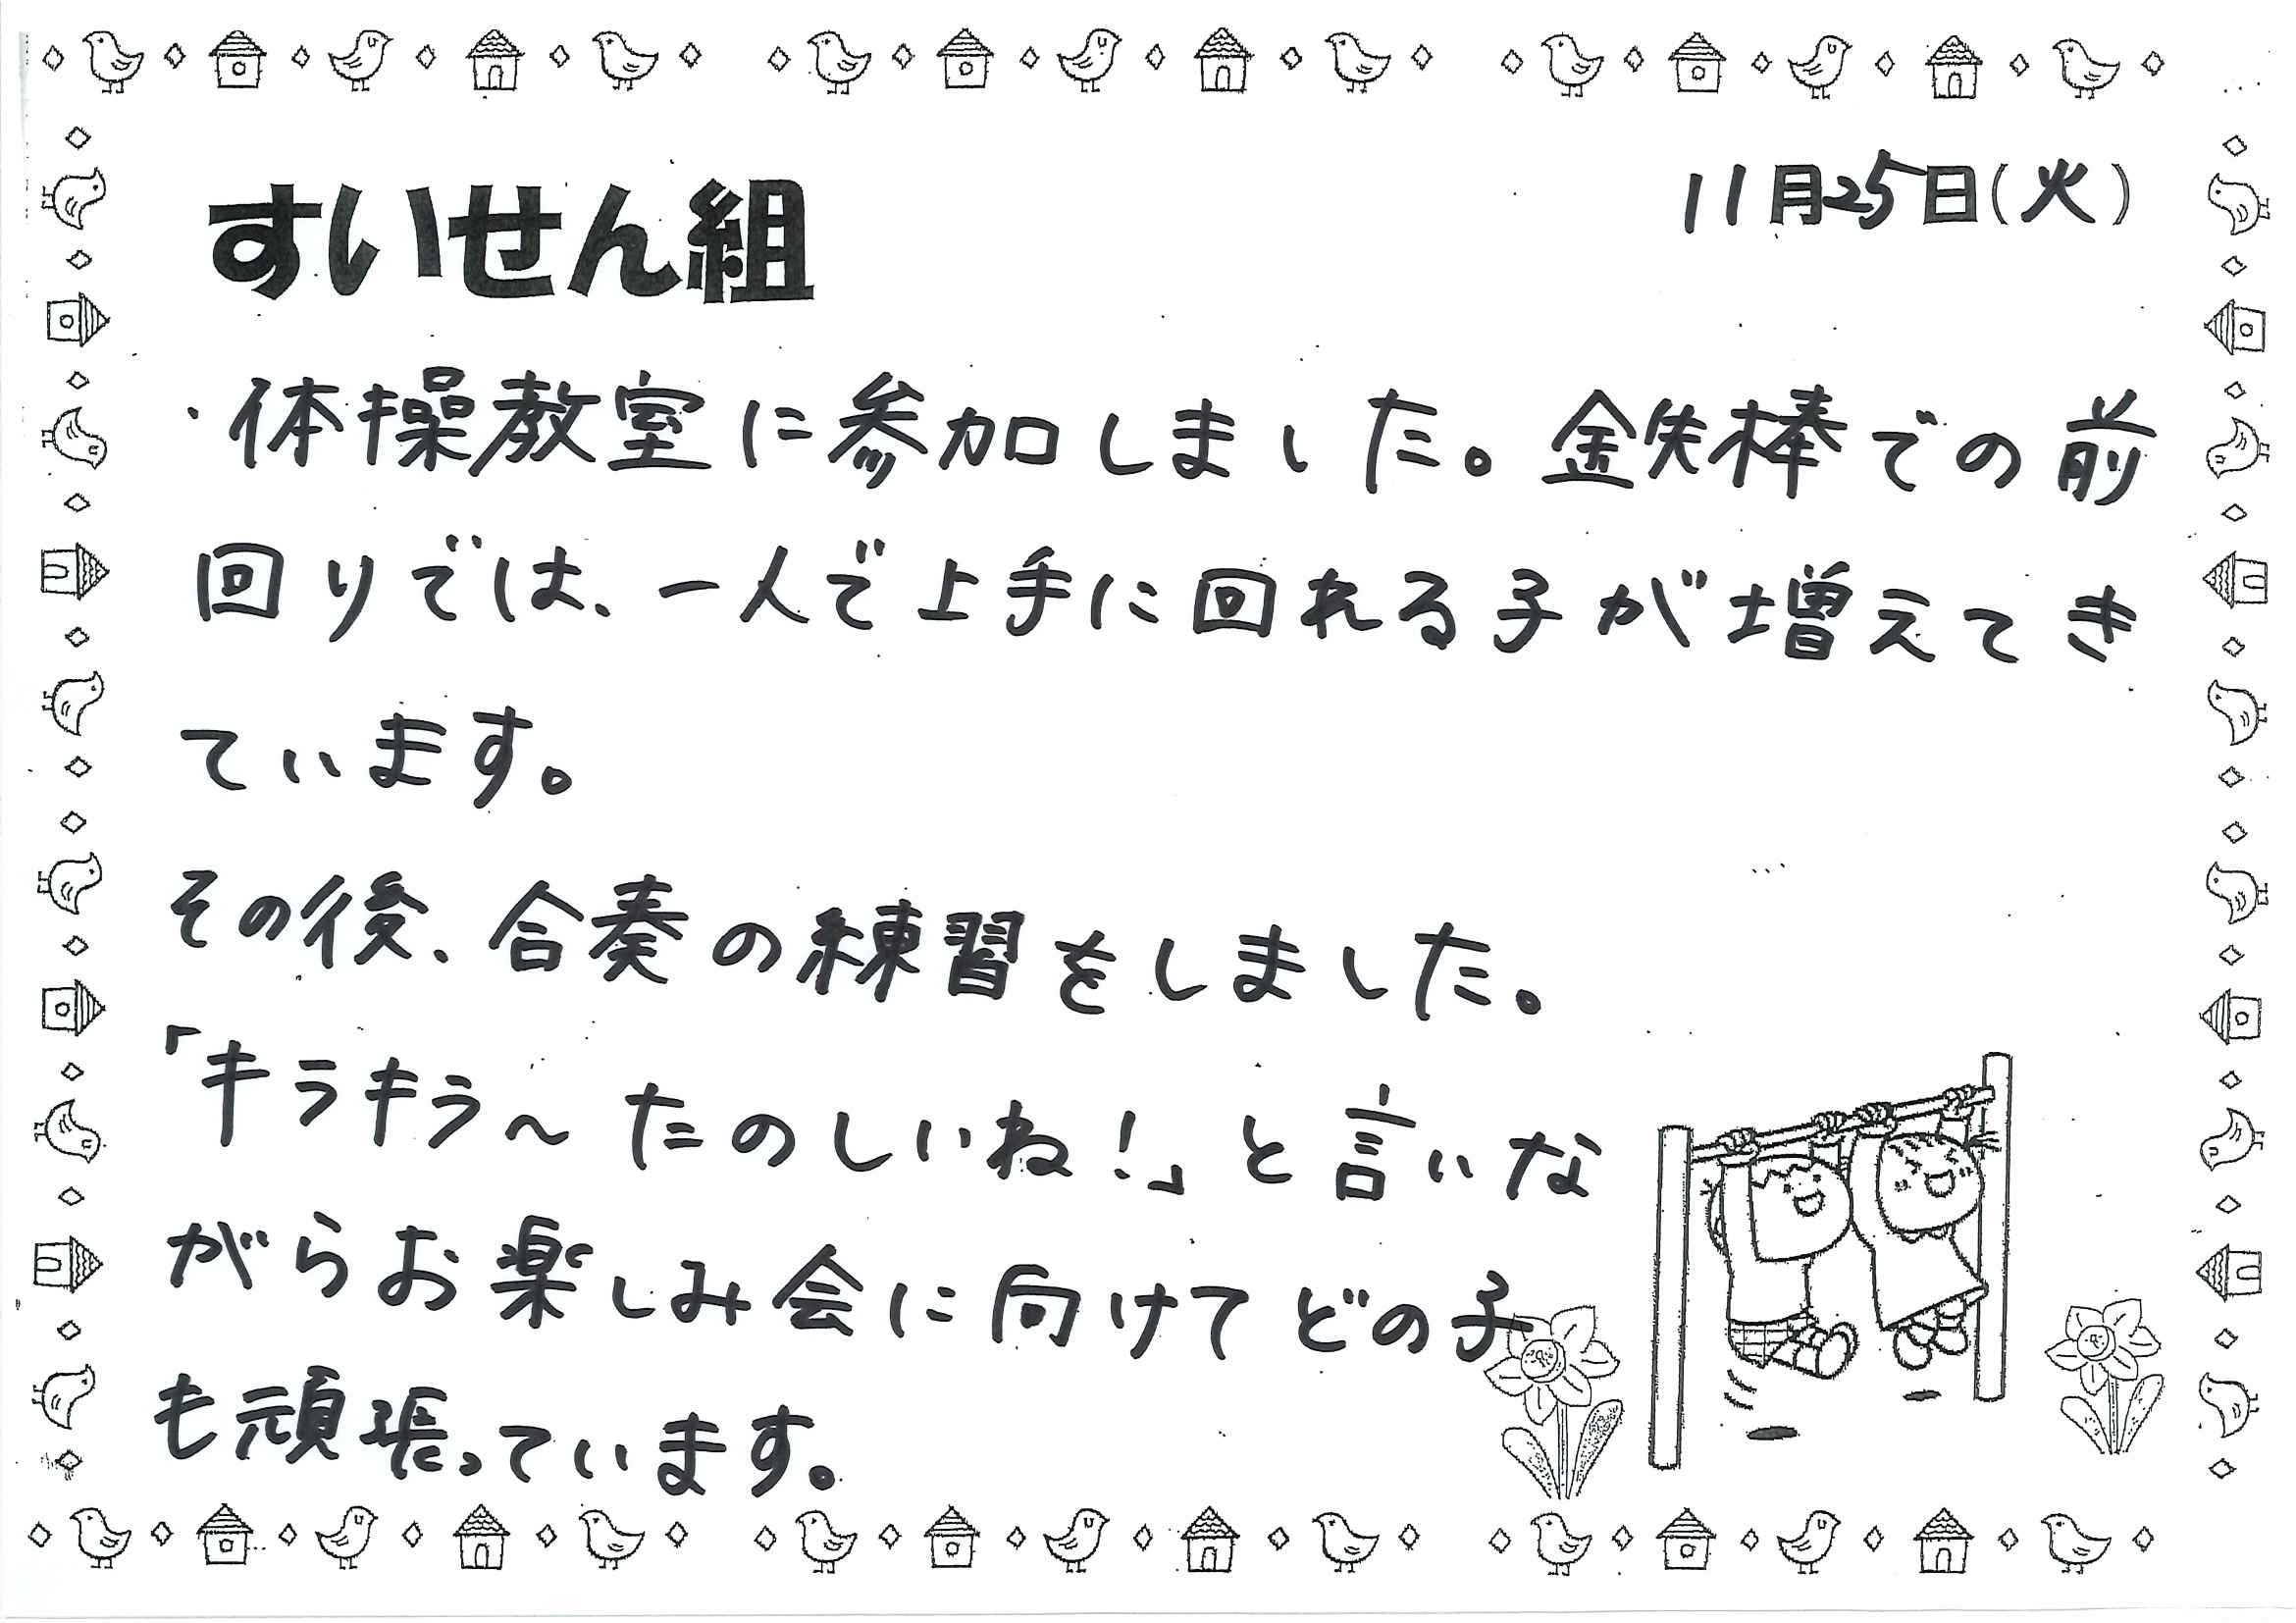 すいせん組
11月25日(火)
・体操教室に参加しました。鉄棒での前
回りでは、一人で上手に回れる子が増えてき
ています。
その後、合奏の練習をしました。
「キラキラ～たのしいね!」と言いな
がらお楽しみ会に向けてどの子
も頑張っています。